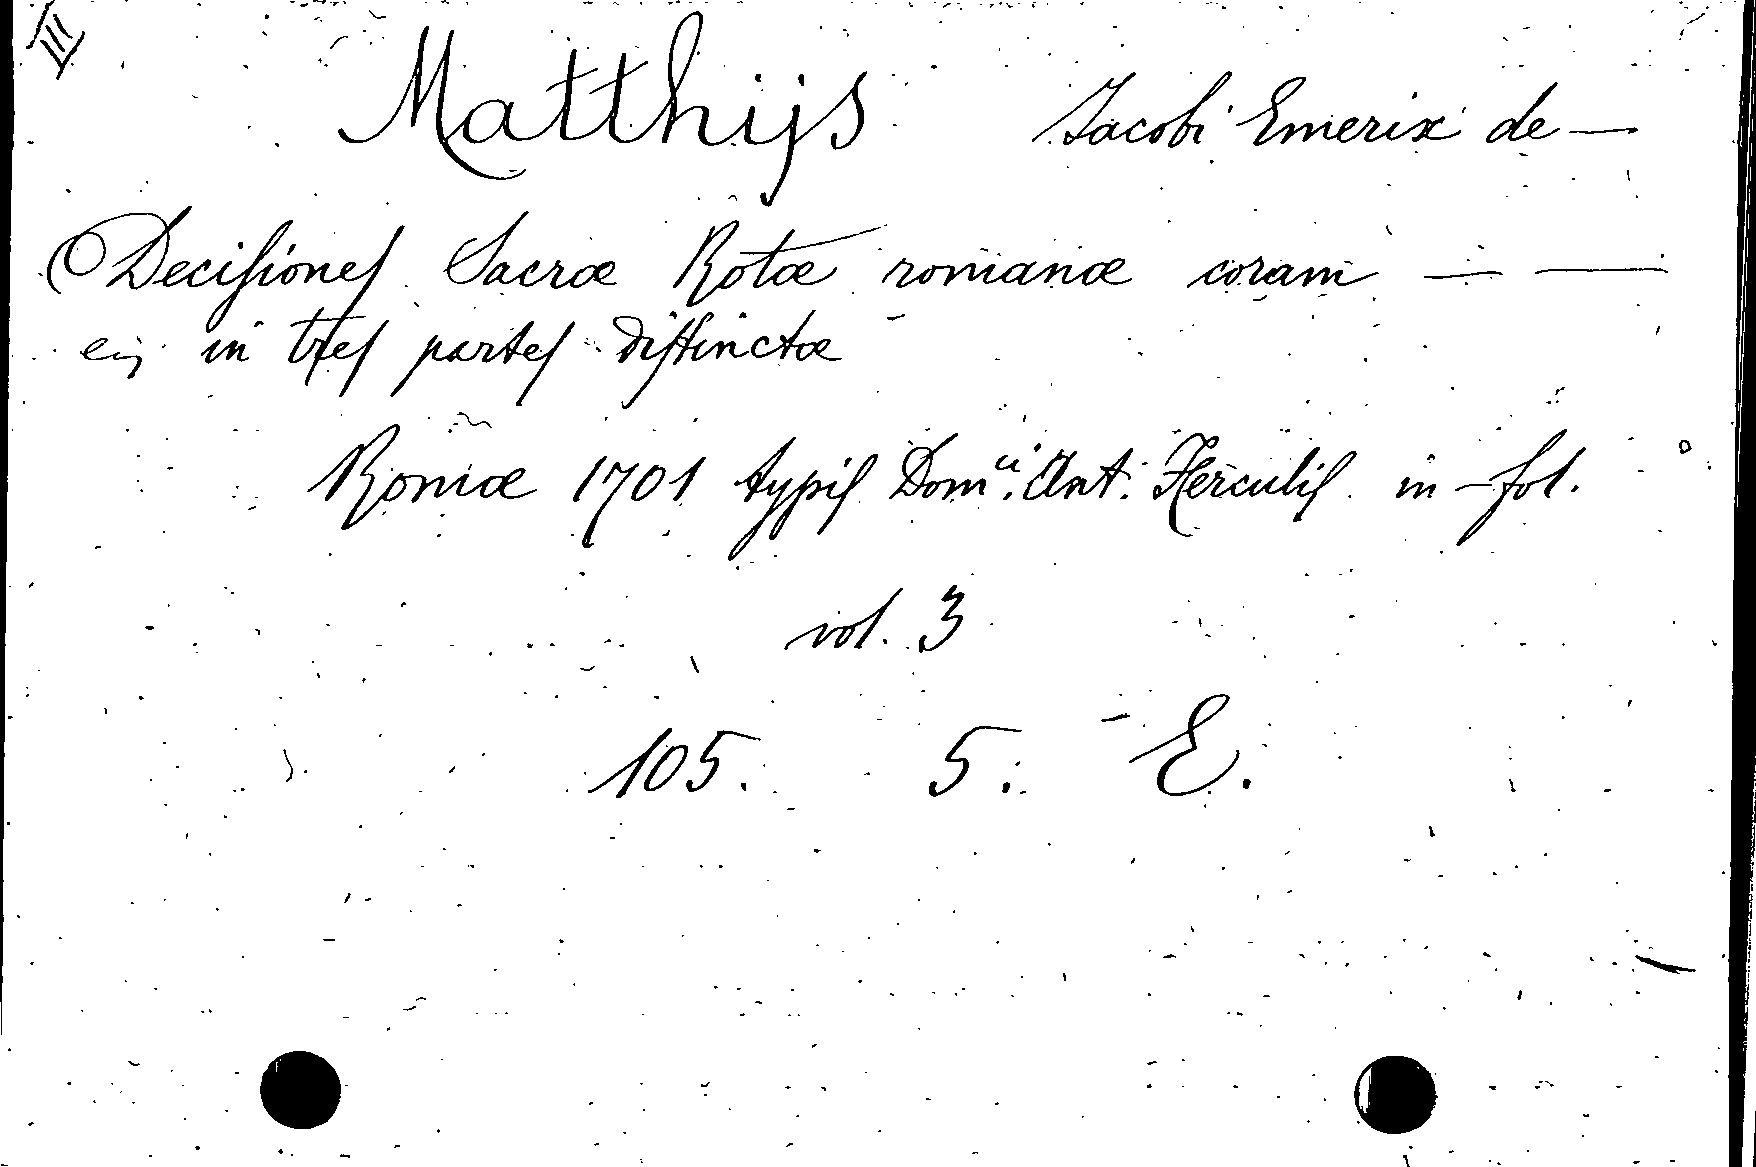 III
Matthijs Jacobi Emerix de —
Deciſioneſ Sacræ Rotæ romanæ coram — —
in treſ parteſ diſtinctæ
Romæ 1701 typiſ Dom.ci Ant. Herculiſ in-fol.
vol. 3
105. 5. E.